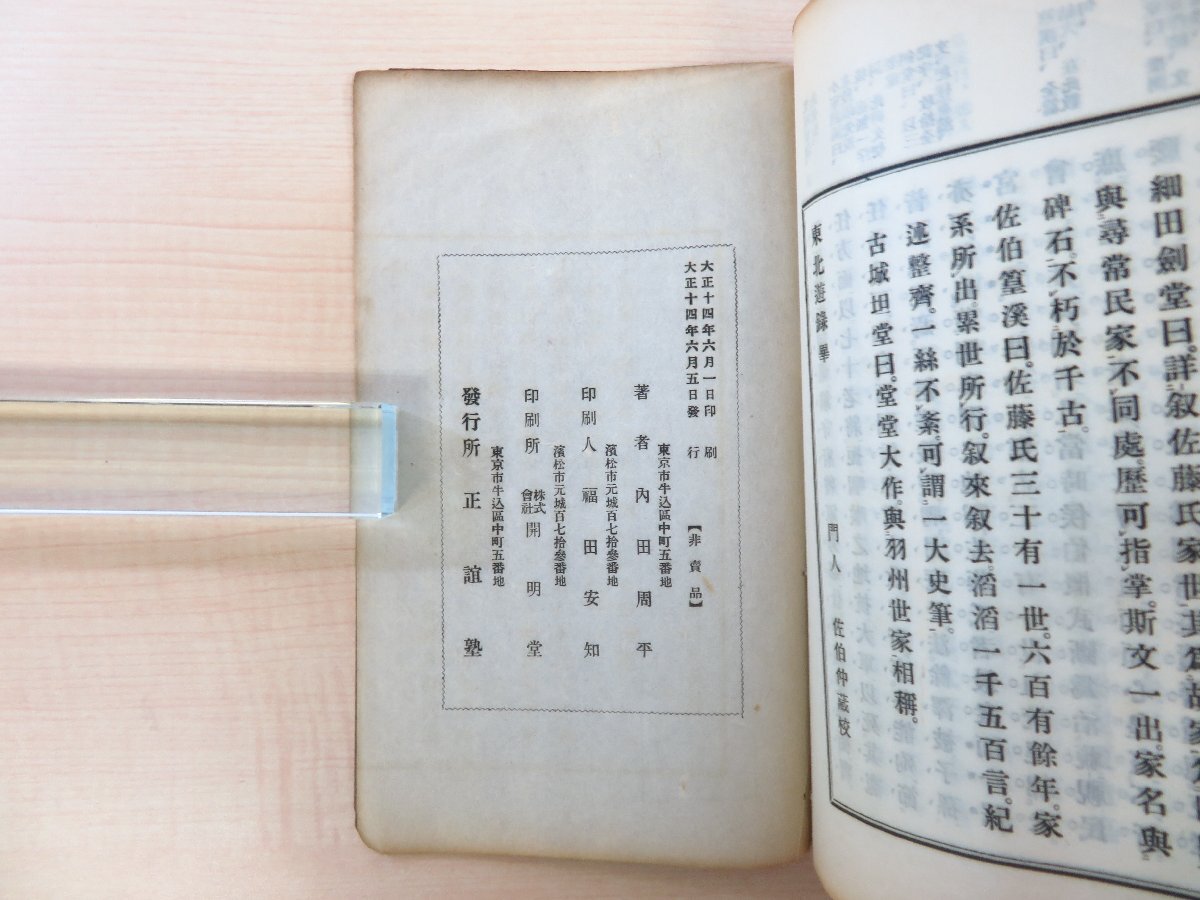 細田劍堂曰。詳叙佐藤氏家世。其爲故家
與尋常民家不同處。歷可指掌。斯文一出。家名與
碑石。不朽於千古。
佐伯篁溪曰。佐藤氏三十有一世。六百有餘年。家
系所出。累世所行。叙來叙去。滔滔一千五百言。紀
述整齊。一絲不紊。可謂一大史筆。
古城坦堂曰。堂堂大作。與羽州世家相稱。
門人 佐伯仲藏校
東北遊錄畢
大正十四年六月一日印刷
大正十四年六月五日發行
【非賣品】
東京市牛込區中町五番地
著者 內田周平
濱松市元城百七拾參番地
印刷人 福田安知
濱松市元城百七拾參番地
印刷所 株式會社 開明堂
東京市牛込區中町五番地
發行所 正誼塾